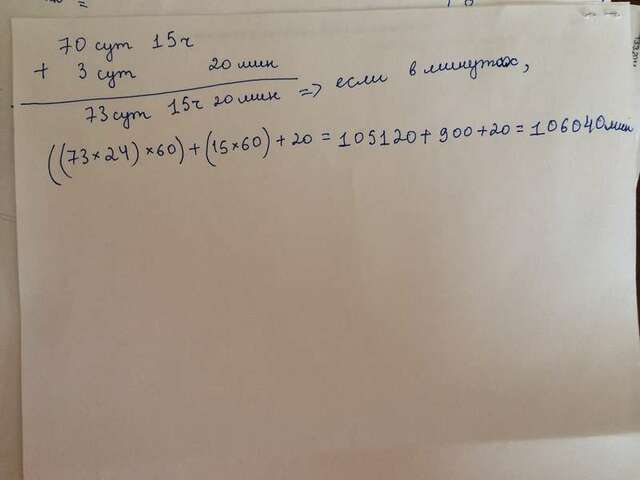 70 сут 15ч
+ 3 сут 20 мин
73 сут 15ч 20 мин => если в минутах,
((73×24)×60)+(15×60)+20 = 105120+900+20=106040мин